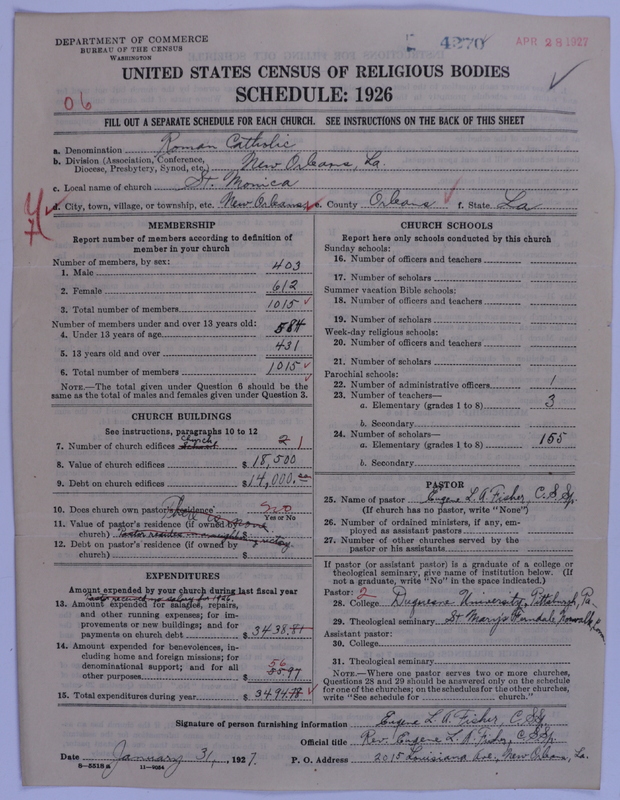 DEPARTMENT OF COMMERCE
BUREAU OF THE CENSUS
WASHINGTON
4270
APR 28 1927
UNITED STATES CENSUS OF RELIGIOUS BODIES
SCHEDULE: 1926
06
FILL OUT A SEPARATE SCHEDULE FOR EACH CHURCH. SEE INSTRUCTIONS ON THE BACK OF THIS SHEET
a. Denomination Roman Catholic
b. Division (Association, Conference, Diocese, Presbytery, Synod, etc.) New Orleans, La.
c. Local name of church St. Monica
d. City, town, village, or township, etc. New Orleans e. County Orleans f. State La
MEMBERSHIP
Report number of members according to definition of
member in your church
Number of members, by sex:
1. Male 403
2. Female 612
3. Total number of members 1015
Number of members under and over 13 years old:
4. Under 13 years of age 584
5. 13 years old and over 431
6. Total number of members 1015
NOTE.—The total given under Question 6 should be the
same as the total of males and females given under Question 3.
CHURCH BUILDINGS
See instructions, paragraphs 10 to 12
7. Number of church edifices church 2 1
8. Value of church edifices $18,500
9. Debt on church edifices $14,000.00
10. Does church own pastor's residence No
Yes or No
11. Value of pastor's residence (if owned by
church) $
12. Debt on pastor's residence (if owned by
church) $
EXPENDITURES
Amount expended by your church during last fiscal year
Pastor received no salary for 1926.
13. Amount expended for salaries, repairs,
and other running expenses; for im-
provements or new buildings; and for
payments on church debt $3438.81
14. Amount expended for benevolences, in-
cluding home and foreign missions; for
denominational support; and for all
other purposes $55.97
56
15. Total expenditures during year $3494.78
CHURCH SCHOOLS
Report here only schools conducted by this church
Sunday schools:
16. Number of officers and teachers
17. Number of scholars
Summer vacation Bible schools:
18. Number of officers and teachers
19. Number of scholars
Week-day religious schools:
20. Number of officers and teachers
21. Number of scholars
Parochial schools:
22. Number of administrative officers 1
23. Number of teachers—
a. Elementary (grades 1 to 8) 3
b. Secondary
24. Number of scholars—
a. Elementary (grades 1 to 8) 155
b. Secondary
PASTOR
25. Name of pastor Eugene L. A. Fisher, C.S.Sp.
(If church has no pastor, write "None")
26. Number of ordained ministers, if any, em-
ployed as assistant pastors
27. Number of other churches served by the
pastor or his assistants
If pastor (or assistant pastor) is a graduate of a college or
theological seminary, give name of institution below. (If
not a graduate, write "No" in the space indicated.)
Pastor: 2
28. College Duquesne University, Pittsburgh, Pa.
29. Theological seminary St Mary's Ferndale Norwalk, Conn
Assistant pastor:
30. College
31. Theological seminary
NOTE.—Where one pastor serves two or more churches,
Questions 28 and 29 should be answered only on the schedule
for one of the churches; on the schedules for the other churches,
write "See schedule for church."
Signature of person furnishing information Eugene L. A. Fisher, C.S.Sp.
Official title Rev. Eugene L. A. Fisher, C.S.Sp.
Date January 31, 1927. P. O. Address 2015 Louisiana Ave., New Orleans, La.
8—5518a 11—9054